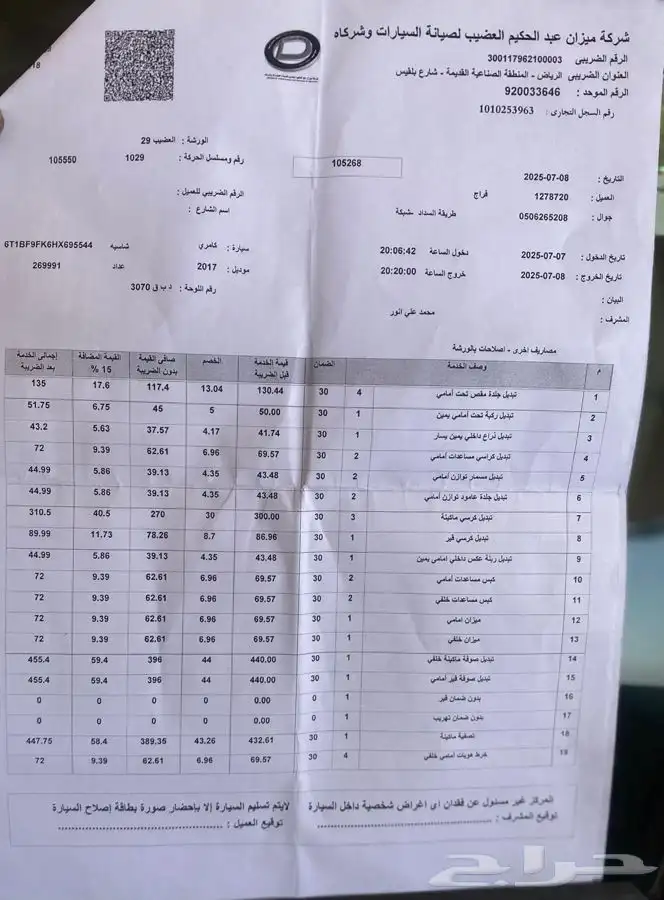 شركة ميزان عبد الحكيم العضيب لصيانة السيارات وشركاه
الرقم الضريبي 300117962100003
العنوان الضريبي الرياض - المنطقة الصناعية القديمة - شارع بلقيس
الرقم الموحد : 920033646
رقم السجل التجاري : 1010253963
الورشة : العضيب 29
رقم ومسلسل الحركة : 1029 105550
105268
التاريخ : 2025-07-08
العميل : 1278720 فراج
الرقم الضريبي للعميل :
جوال : 0506265208 طريقة السداد شبكة
اسم الشارع :
تاريخ الدخول : 2025-07-07 دخول الساعة 20:06:42
سيارة : كامري شاسيه 6T1BF9FK6HX695544
تاريخ الخروج : 2025-07-08 خروج الساعة 20:20:00
موديل : 2017 عداد 269991
البيان :
رقم اللوحة : د ب ق 3070
المشرف : محمد علي انور
مصاريف اخرى - اصلاحات بالورشة
م وصف الخدمة الضمان قيمة الخدمة قبل الضريبة الخصم صافى القيمة بدون الضريبة القيمة المضافة 15 % إجمالى الخدمة بعد الضريبة
1 تبديل جلدة مقص تحت أمامي 4 30 130.44 13.04 117.4 17.6 135
2 تبديل ركبة تحت أمامي يمين 1 30 50.00 5 45 6.75 51.75
3 تبديل ذراع داخلي يمين يسار 1 30 41.74 4.17 37.57 5.63 43.2
4 تبديل كراسي مساعدات أمامي 2 30 69.57 6.96 62.61 9.39 72
5 تبديل مسمار توازن أمامي 2 30 43.48 4.35 39.13 5.86 44.99
6 تبديل جلدة عامود توازن أمامي 2 30 43.48 4.35 39.13 5.86 44.99
7 تبديل كرسي ماكينة 3 30 300.00 30 270 40.5 310.5
8 تبديل كرسي قير 1 30 86.96 8.7 78.26 11.73 89.99
9 تبديل ربلة عكس داخلي امامي يمين 1 30 43.48 4.35 39.13 5.86 44.99
10 كبس مساعدات أمامي 2 30 69.57 6.96 62.61 9.39 72
11 كبس مساعدات خلفي 2 30 69.57 6.96 62.61 9.39 72
12 ميزان امامي 1 30 69.57 6.96 62.61 9.39 72
13 ميزان خلفي 1 30 69.57 6.96 62.61 9.39 72
14 تبديل صوفة ماكينة خلفي 1 30 440.00 44 396 59.4 455.4
15 تبديل صوفة قير أمامي 1 30 440.00 44 396 59.4 455.4
16 بدون ضمان قير 1 0 0.00 0 0 0 0
17 بدون ضمان تهريب 1 0 0.00 0 0 0 0
18 تصفية ماكينة 1 30 432.61 43.26 389.35 58.4 447.75
19 خرط هوبات أمامي خلفي 4 30 69.57 6.96 62.61 9.39 72
المركز غير مسئول عن فقدان اى اغراض شخصية داخل السيارة
لايتم تسليم السيارة إلا بإحضار صورة بطاقة إصلاح السيارة
توقيع المشرف :
توقيع العميل :
حراج